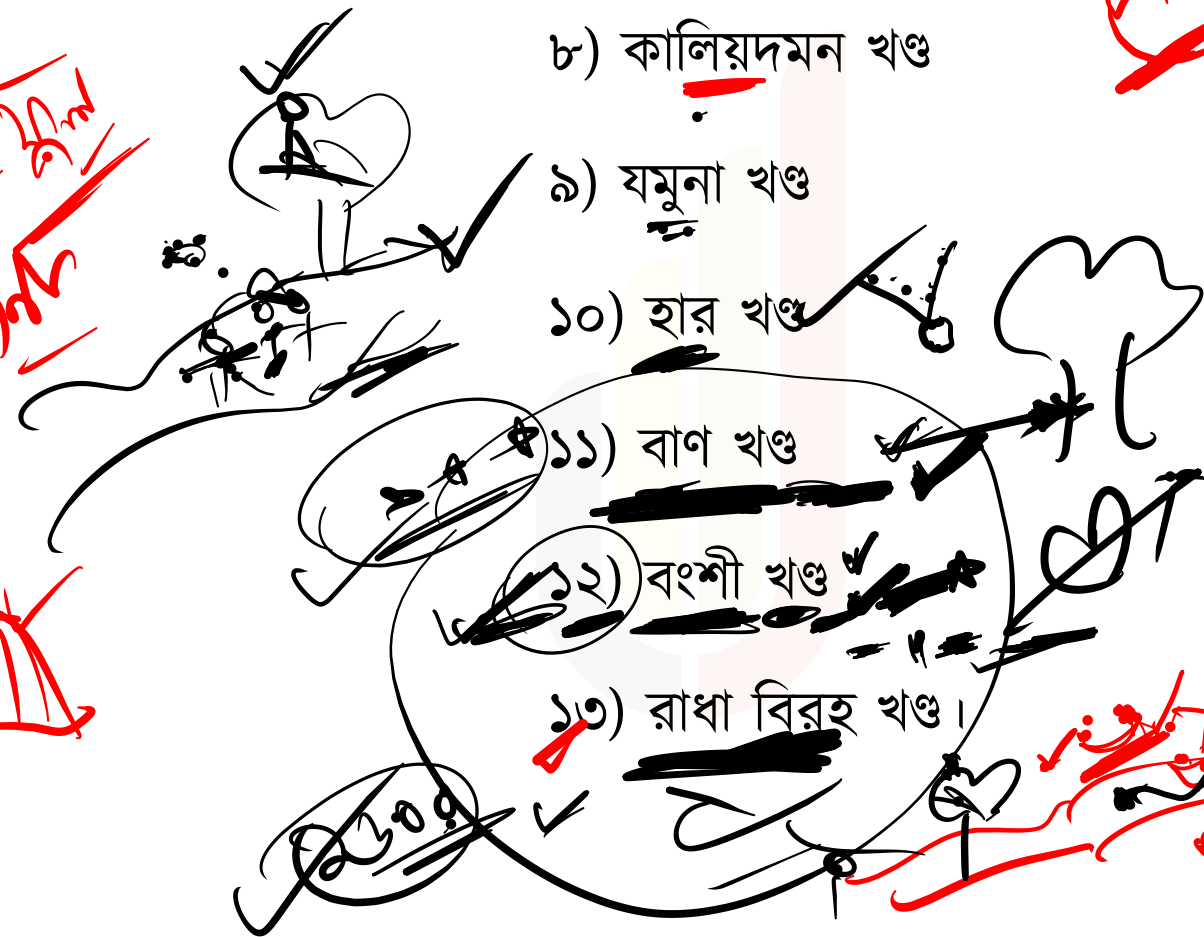 ৮) কালিয়দমন খণ্ড
৯) যমুনা খণ্ড
১০) হার খণ্ড
১১) বাণ খণ্ড
১২) বংশী খণ্ড
১৩) রাধা বিরহ খণ্ড।